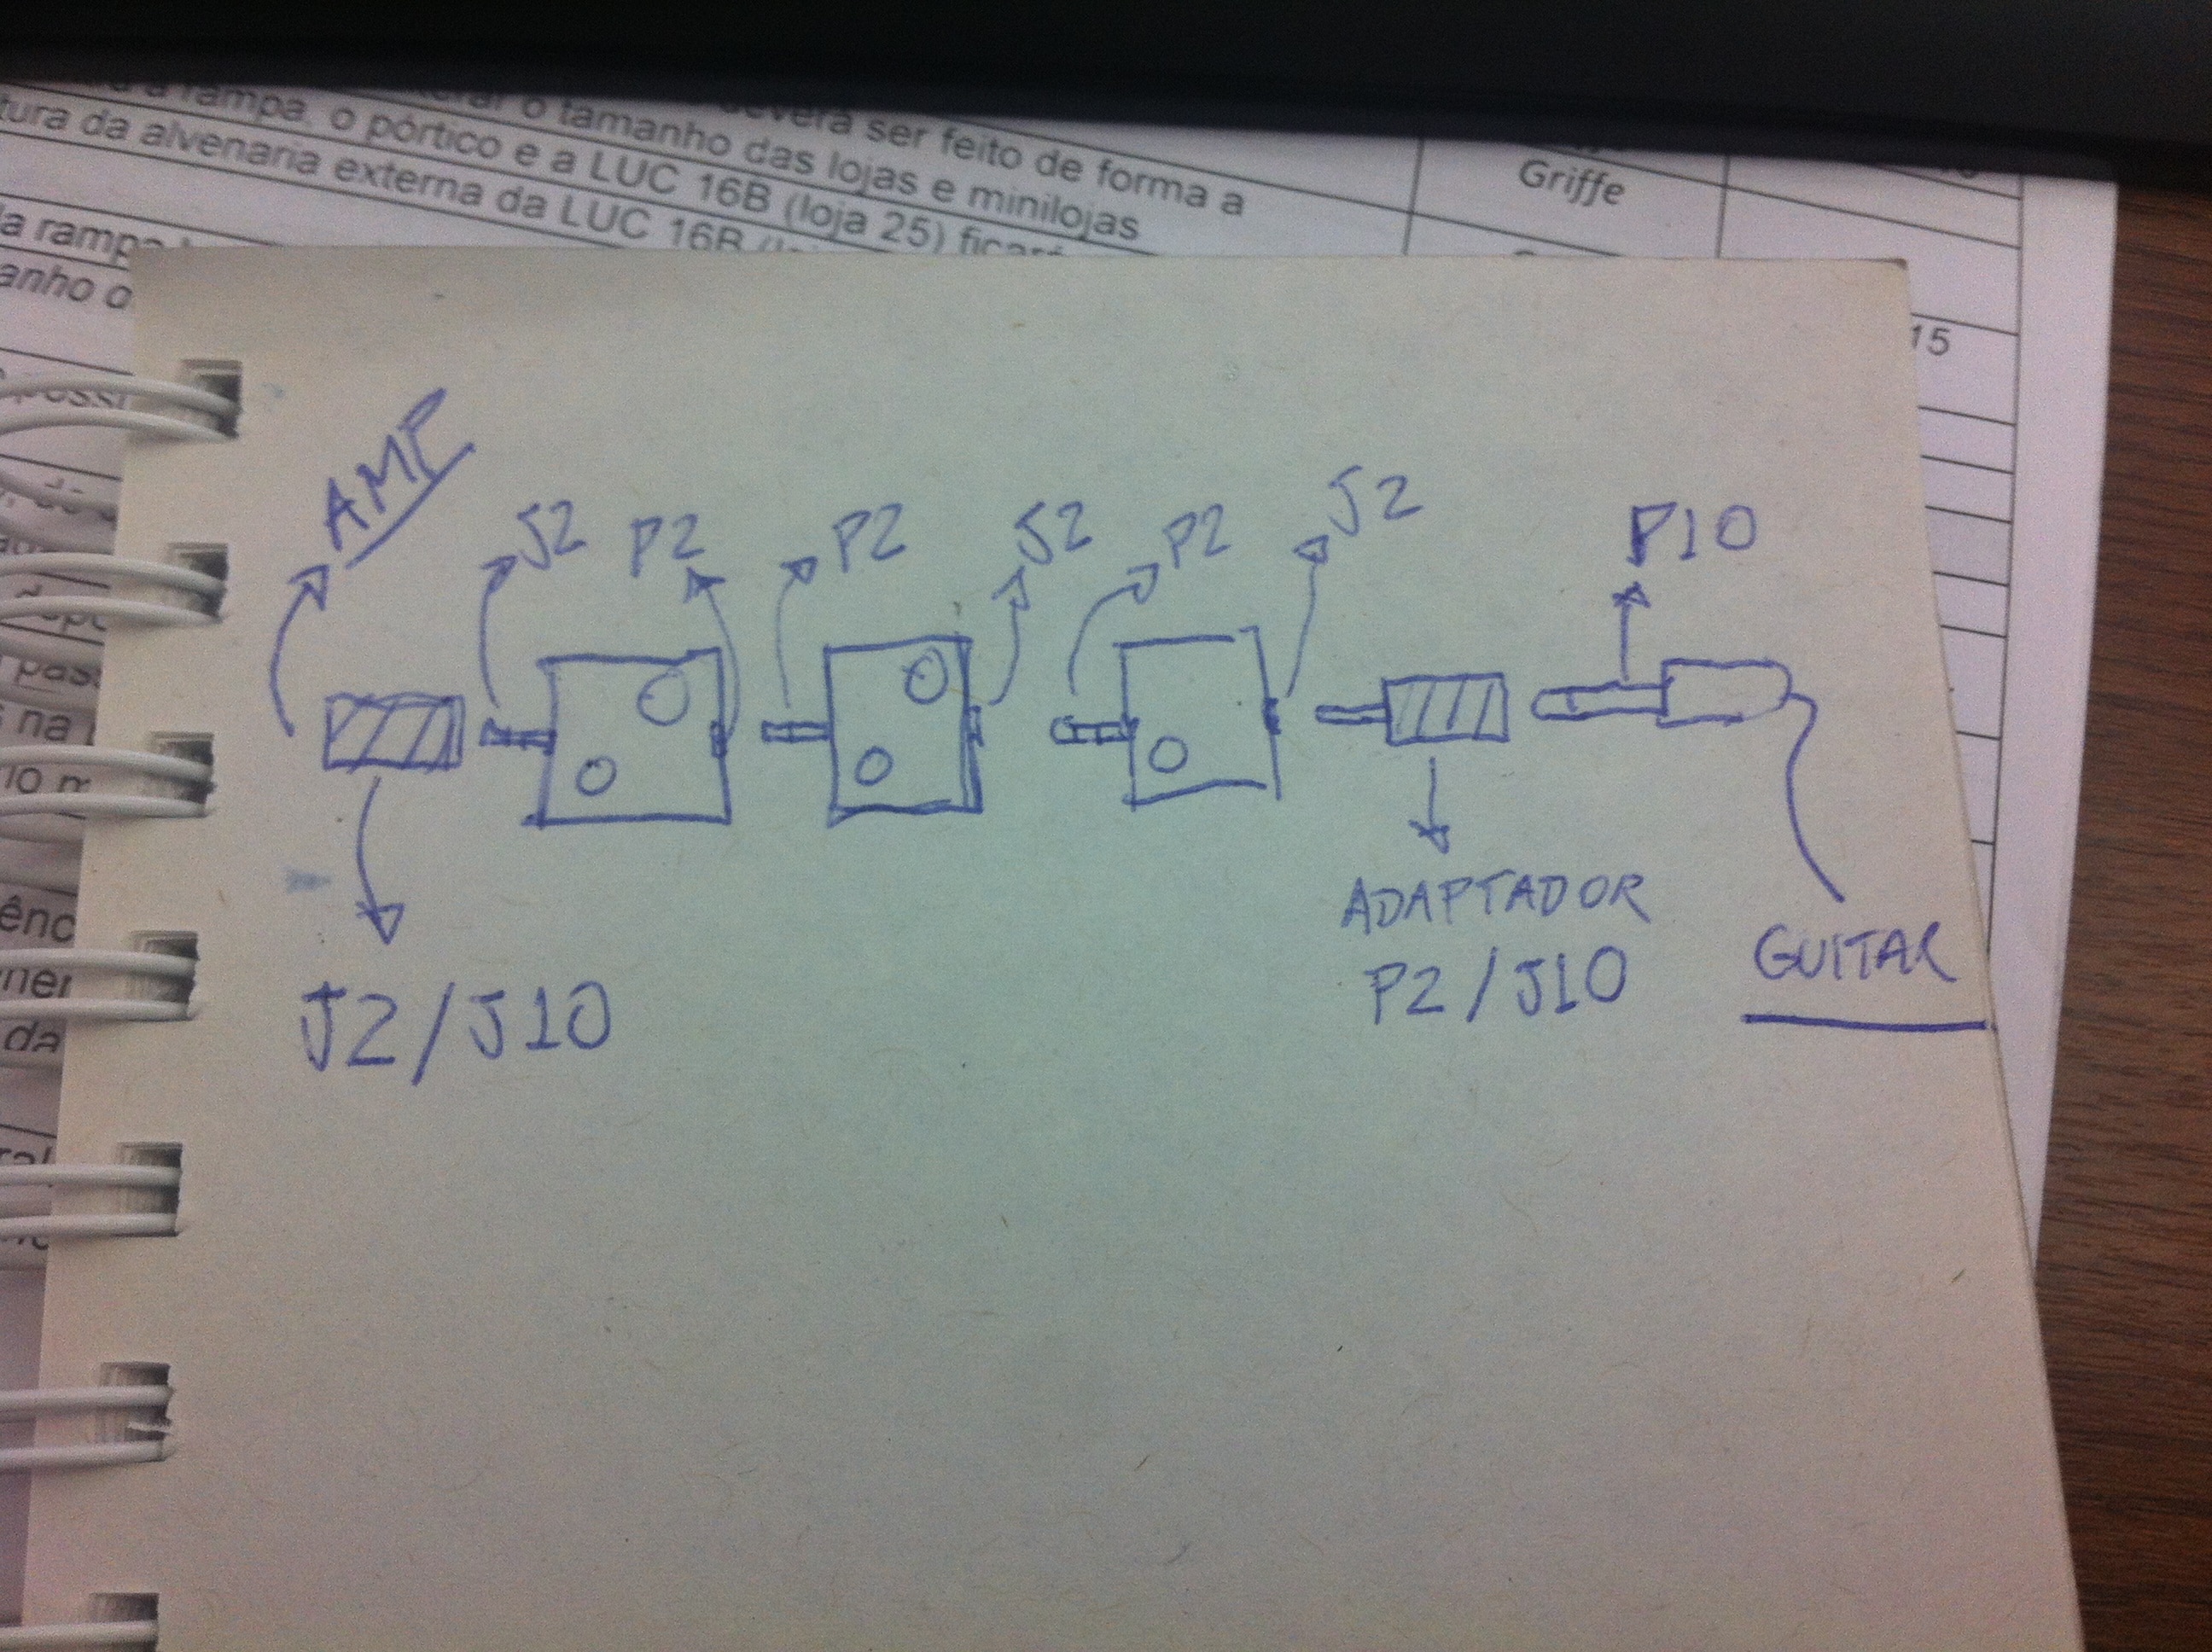 deverá ser feito de forma a
o tamanho das lojas e minilojas
a rampa, o pórtico e a LUC 16B (loja 25) ficará
tura da alvenaria externa da LUC 16B
Griffe
la rampa
anho o
15
possi
na
da
AMP
J2
P2
P2
J2
P2
J2
P10
ADAPTADOR
P2/J10
J2/J10
GUITAR